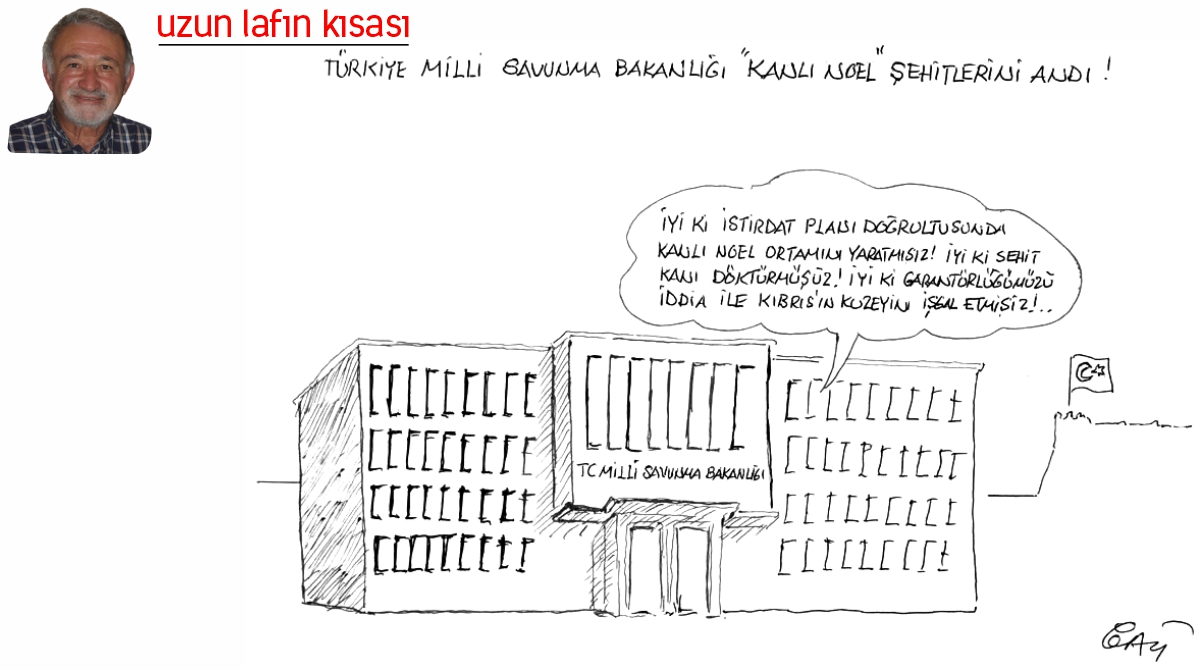 uzun lafın kısası
TÜRKİYE MİLLİ SAVUNMA BAKANLIĞI "KANLI NOEL" ŞEHİTLERİNİ ANDI !
İYİ Kİ İSTİRDAT PLANI DOĞRULTUSUNDA
KANLI NOEL ORTAMINI YARATMIŞIZ! İYİ Kİ ŞEHİT
KANI DÖKTÜRMÜŞÜZ! İYİ Kİ GARANTÖRLÜĞÜMÜZÜ
İDDİA İLE KIBRIS'IN KUZEYİNİ İŞGAL ETMİŞİZ!..
TC MİLLİ SAVUNMA BAKANLIĞI